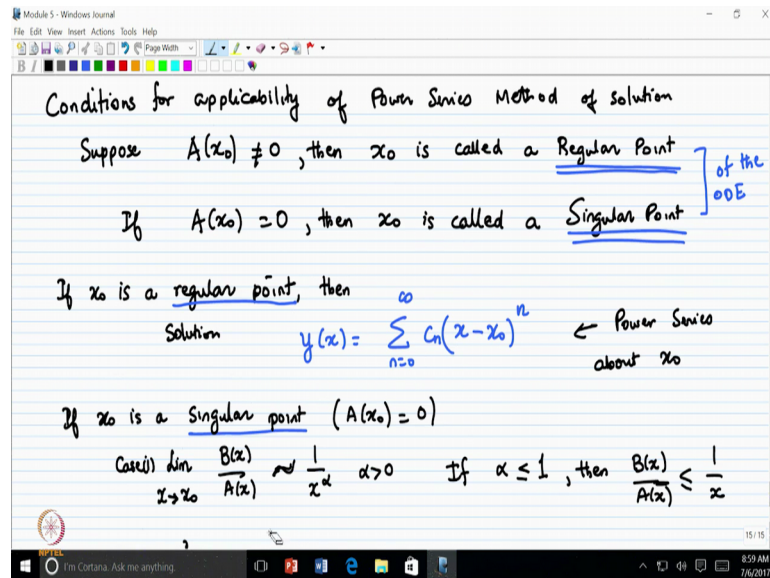 Module 5 - Windows Journal
File Edit View Insert Actions Tools Help
Page Width
B I
Conditions for applicability of Power Series Method of solution
Suppose A(x₀) ≠ 0, then x₀ is called a Regular Point
of the
ODE
If A(x₀) = 0, then x₀ is called a Singular Point
If x₀ is a regular point, then
Solution y(x) = ∑_{n=0}^{∞} Cₙ(x-x₀)ⁿ ← Power Series
about x₀
If x₀ is a Singular point (A(x₀) = 0)
Case(i) Lim_{x→x₀} B(x)/A(x) ≈ 1/x^α α>0 If α ≤ 1, then B(x)/A(x) ≤ 1/x
15/15
NPTEL
I'm Cortana. Ask me anything.
8:59 AM
7/6/2017